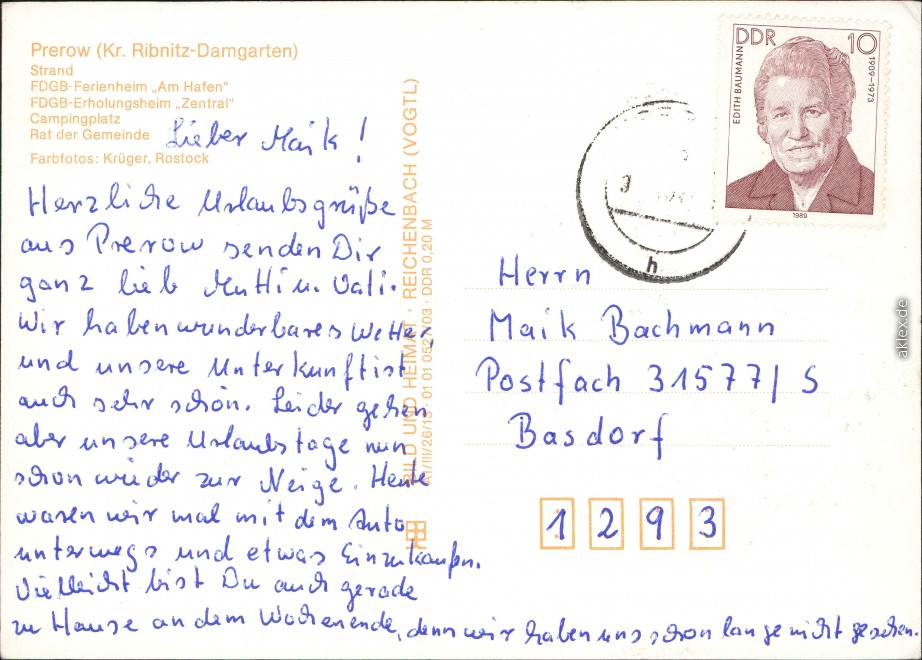 Prerow (Kr. Ribnitz-Damgarten)
Strand
FDGB-Ferienheim „Am Hafen“
FDGB-Erholungsheim „Zentral“
Campingplatz
Rat der Gemeinde
Farbfotos: Krüger, Rostock
Lieber Maik!
Herzliche Urlaubsgrüße
aus Prerow senden Dir
ganz lieb Mutti u. Vati.
Wir haben wunderbares Wetter,
und unsere Unterkunft ist
auch sehr schön. Leider gehen
aber unsere Urlaubstage nun
schon wieder zur Neige. Heute
waren wir mal mit dem Auto
unterwegs und etwas Einzukaufen.
Vielleicht bist Du auch gerade
zu Hause an dem Wochenende, denn wir haben uns schon lange nicht gesehen.
BILD UND HEIMAT · REICHENBACH (VOGTL)
A1/III/26/13 · 01 01 0527/03 · DDR 0,20 M
DDR 10
EDITH BAUMANN
1909–1973
1989
h
Herrn
Maik Bachmann
Postfach 31577/S
Basdorf
1 2 9 3
aklex.de